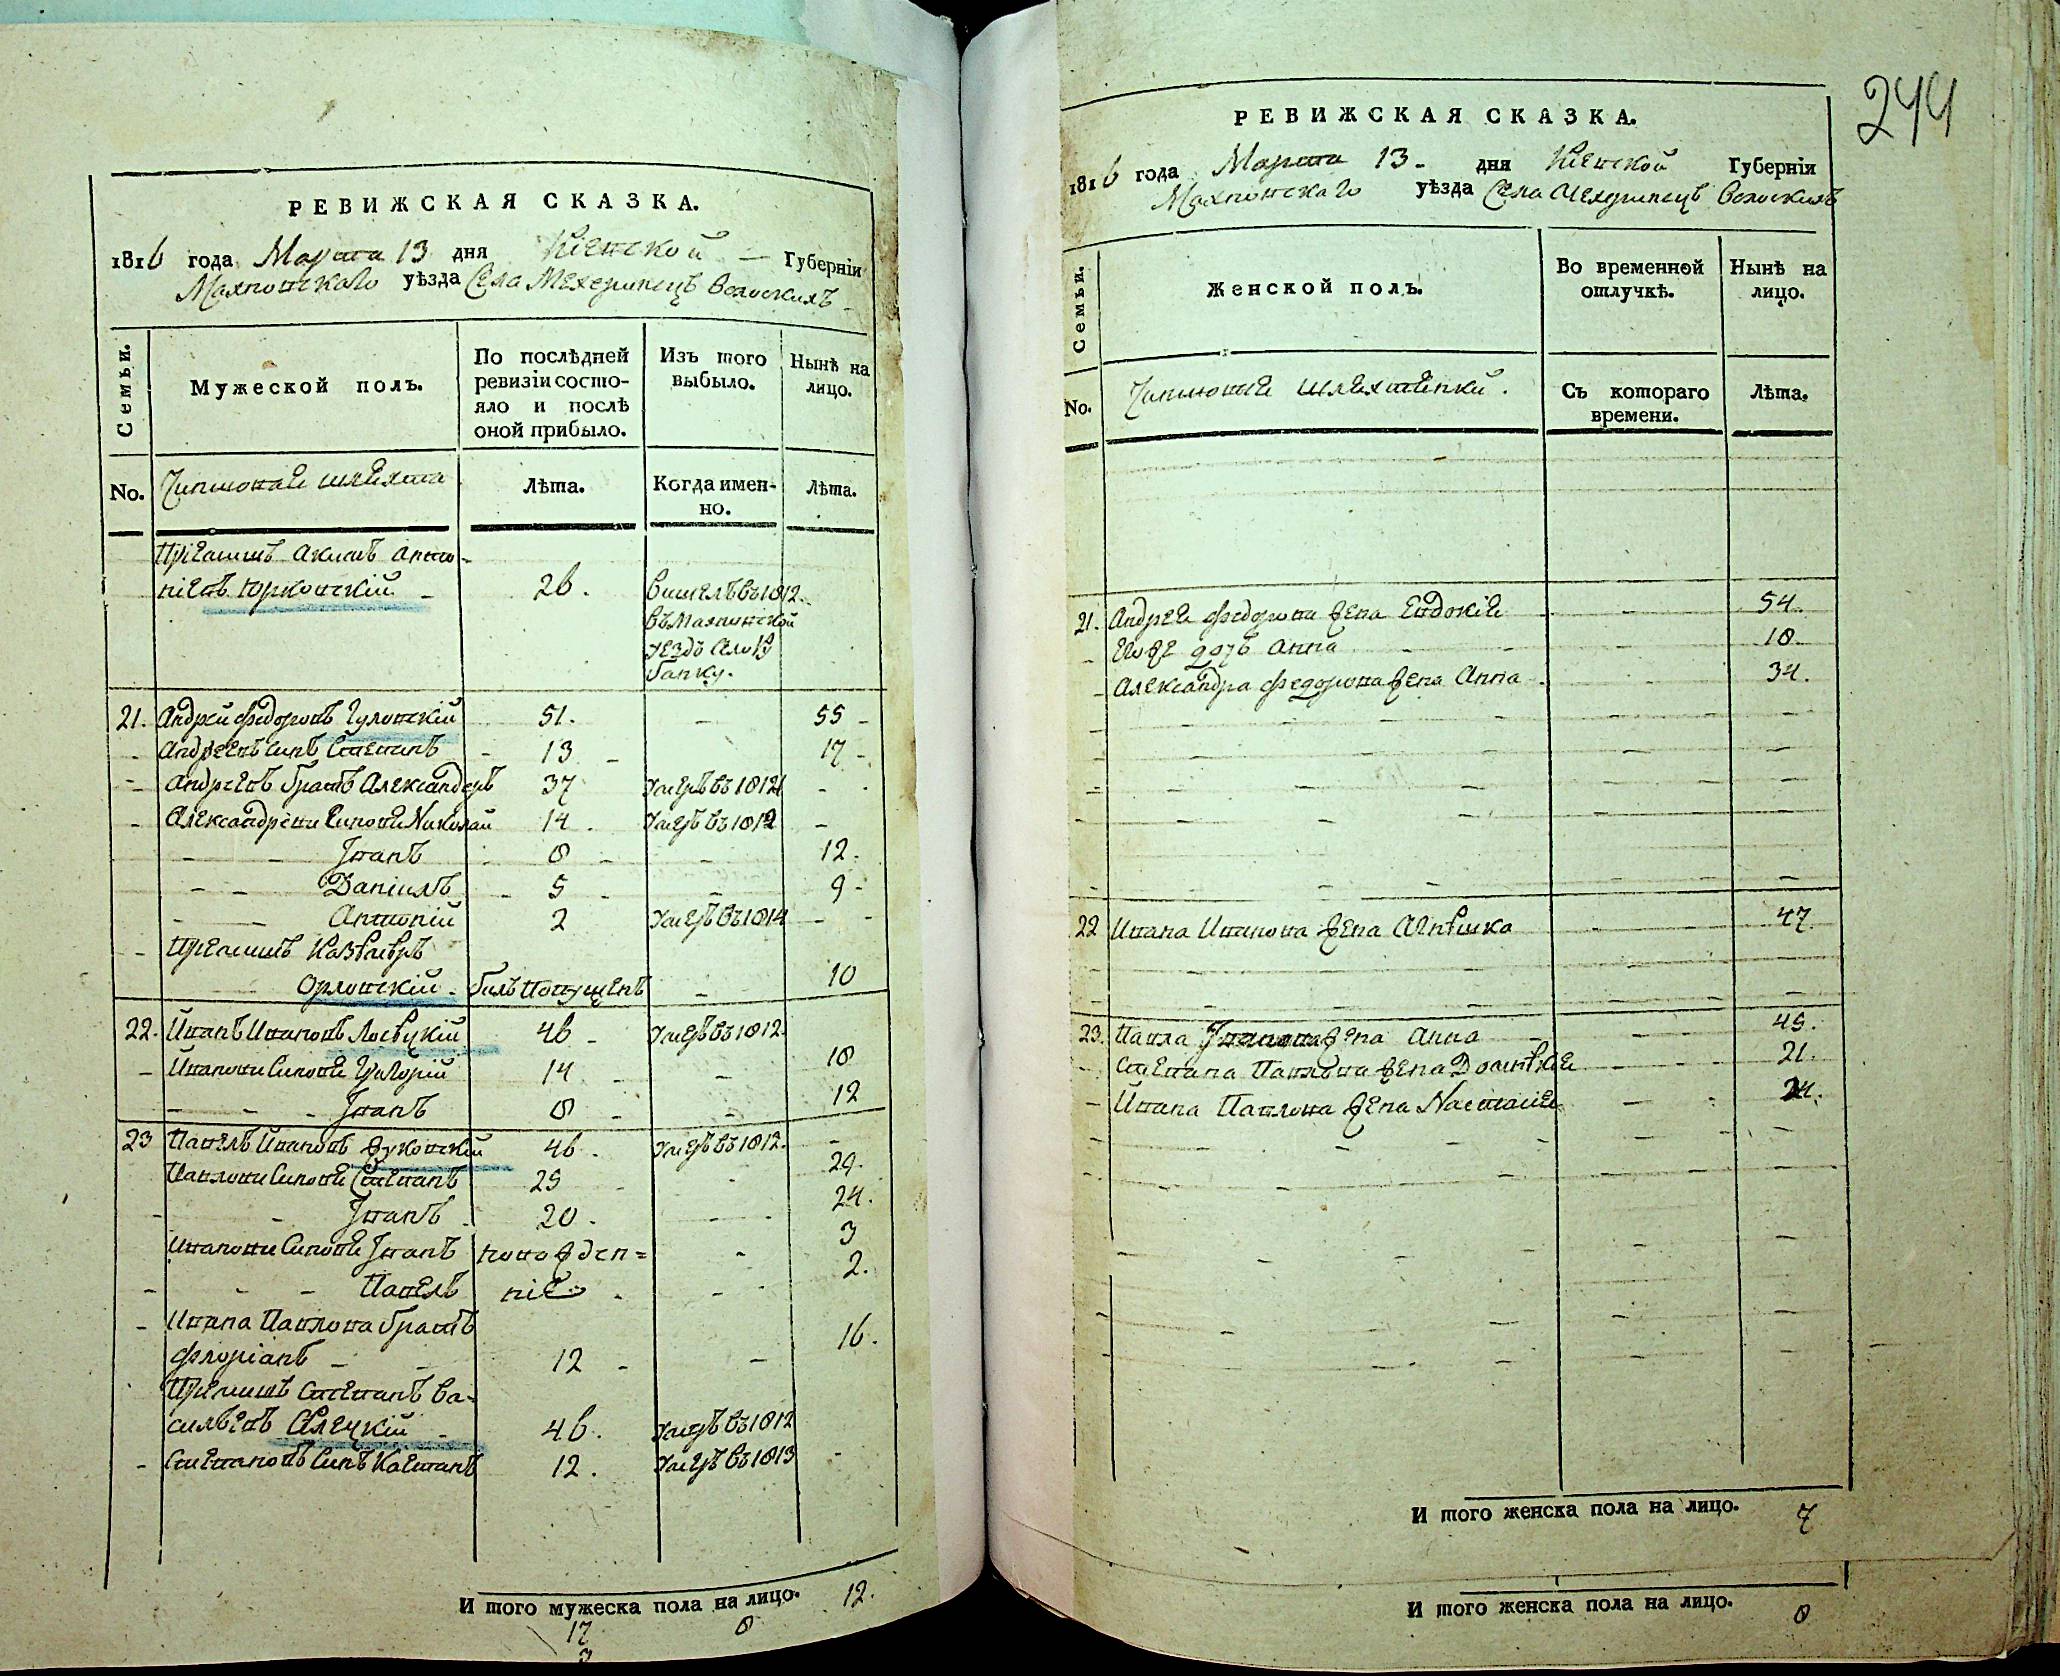 РЕВИЖСКАЯ СКАЗКА.
1816 года Марта 13 дня Кіевской Губерніи
Махновскаго уѣзда Села Мехеринецъ Волоскихъ
Семьи.
Мужеской полъ.
По послѣдней ревизіи состо-
яло и послѣ
оной прибыло.
Изъ того
выбыло.
Нынѣ на
лицо.
No. Чиншовая шляхта
Лѣта.
Когда имен-
но.
Лѣта.
Акимъ Анто-
ніевъ Юрковскій 26. 1812.
въ Махновской
21. Андрей Федоровъ Гуловскій 51. - 55
Андреевъ синъ Степанъ 13 17
Андреевъ братъ Александеръ 37 Умеръ въ 1812
Александрови синови Николай 14 Умеръ въ 1812
Іванъ 8 - 12.
Даніилъ 5 - 9
Антоній 2 Умеръ въ 1814
Казѣміръ
Орловскій - билъ попущенъ - 10
22. Иванъ Ивановъ Лосѣцкій 46 Умеръ въ 1812.
Иванови синови Григорій 14 - 18
Іванъ 8 - 12
23 Павелъ Ивановъ Жуковскій 46. Умеръ въ 1812. -
Павлови синови Степанъ 25 - 29.
Іванъ 20. - 24.
Иванови синови Іванъ новорожден= - 3
Павелъ ніе - 2.
Ивана Павлова братъ
Флоріанъ 12 - 16.
Степанъ Ва-
сильевъ 46. Умеръ въ 1812
Степановъ синъ Каетанъ 12. Умеръ въ 1813 -
И того мужеска пола на лицо. 12.
17 8
3
244
РЕВИЖСКАЯ СКАЗКА.
1816 года Марта 13 - дня Кіевской Губерніи
Махновскаго уѣзда Села Мехеринецъ Волоскихъ
Семьи.
Женской полъ.
Во временной
отлучкѣ.
Нынѣ на
лицо.
No. Чиншовие шляхтенки.
Съ котораго
времени.
Лѣта.
21. Андрея Федорова жена Евдокія - 54.
Его же дочь Анна - 18
Александра Федорова жена Анна - 34.
22 Ивана Иванова жена Агнѣшка 47
23. Павла Іванова жена Анна - 45.
Степана Павлова жена Доминѣкія - 21.
Ивана Павлова жена Настасія - 24.
И того женска пола на лицо. 7
И того женска пола на лицо. 8